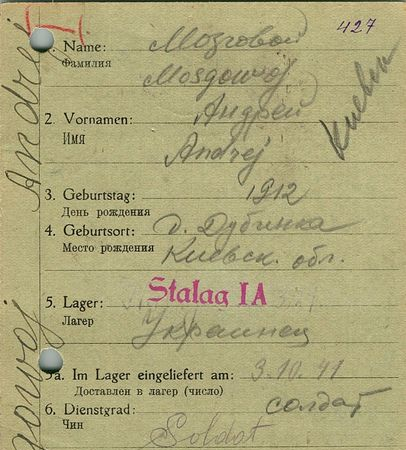 427
1. Name: Мозговой
Фамилия Mosgowoj
2. Vornamen: Андрей
Имя Andrej
Киевск
3. Geburtstag: 1912
День рождения
4. Geburtsort: д. Дубинка
Место рождения Киевск. обл.
5. Lager: Stalag IA
Лагер Украинец
5a. Im Lager eingeliefert am: 3.10.41
Доставлен в лагер (число)
6. Dienstgrad: солдат
Чин Soldat
Andrej
gowoj